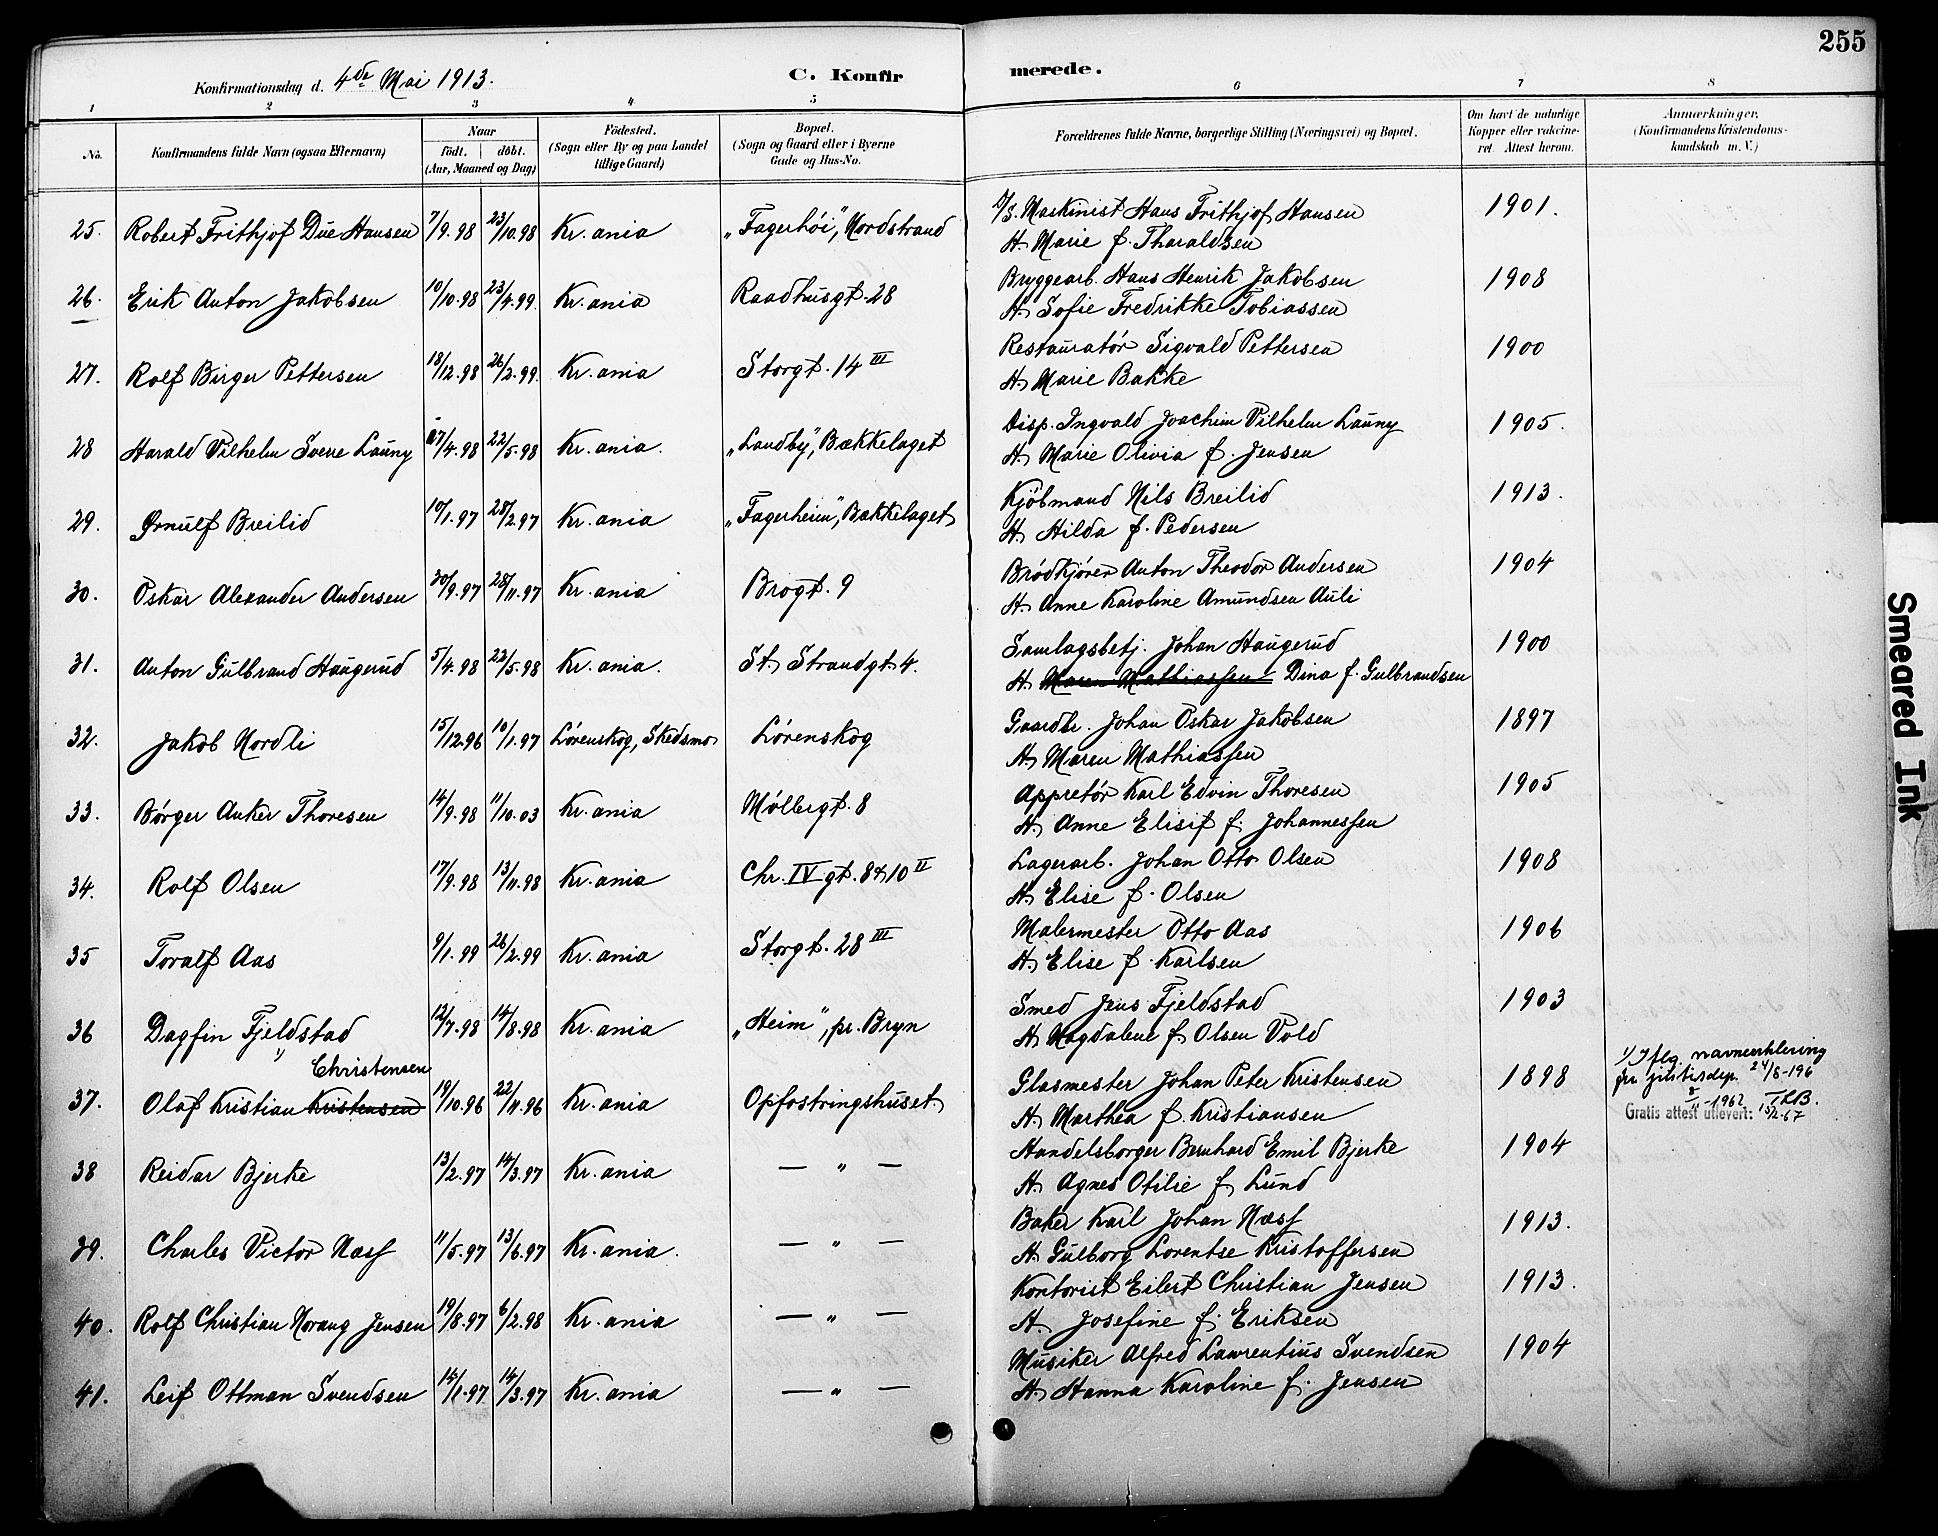 255
Konfirmationsdag d. 4de Mai 1913.
C. Konfirmerede.
1 2 3 4 5 6 7 8
No. Konfirmandens fulde Navn (ogsaa Efternavn) Naar födt. döbt. (Aar, Maaned og Dag) Födested. (Sogn eller By og paa Landet tillige Gaard) Bopæl. (Sogn og Gaard eller i Byerne Gade og Hus-No. Forældrenes fulde Navne, borgerlige Stilling (Næringsvei) og Bopæl. Om havt de naturlige Kopper eller vakcineret. Attest herom. Anmerkninger. (Konfirmandens Kristendomskundskab m. V.)
25. Robert Frithjof Due Hansen 7/9.98 23/10.98 Kr.ania "Fagerhöi", Nordstrand Maskinist Hans Frithjof Hansen 1901.
H. Marie f. Tharaldsen
26. Erik Anton Jakobsen 10/10.98 23/4.99. Kr.ania Raadhusgt. 28 Bryggearb. Hans Henrik Jakobsen 1908
H. Sofie Fredrikke Tobiassen
27. Rolf Birger Pettersen 18/12.98 26/2.99. Kr.ania Storgt. 14 III Restauratör Sigvald Pettersen 1900
H. Marie Bakke
28 Harald Vilhelm Sverre Launy 27/4.98 22/5.98 Kr.ania. "Landby", Bækkelaget Disp. Ingvald Joachim Vilhelm Launy 1905.
H. Marie Olivia f. Jensen
29. Ørnulf Breilid 10/1.97 28/2.97 Kr.ania "Fagerheim", Bækkelaget Kjöbmand Nils Breilid 1913.
H. Hilda f. Pedersen
30. Oskar Alexander Andersen 30/9.97 28/11.97 Kr.ania Brogt. 9 Brödkjörer Anton Theodor Andersen 1904
H. Anne Karoline Amundsen Auli
31. Anton Gulbrand Haugerud 5/4.98 22/5.98 Kr.ania. St. Strandgt 4. Samlagsbetj. Johan Haugerud 1900
H. Maren Mathiassen Dina f. Gulbrandsen
32. Jakob Nordli 15/12.96 10/1.97 Lörenskog, Skedsmo Lörenskog Gaardbr. Johan Oskar Jakobsen 1897
H. Maren Mathiassen
33. Börger Anker Thoresen 14/9.98 11/10.03 Kr.ania Möllergt. 8 Appretör Karl Edvin Thoresen 1905
H. Anne Elisif f. Johannessen
34. Rolf Olsen 17/9.98 13/11.98 Kr.ania Chr. IV gt. 8 & 10 II Lagerarb. Johan Otto Olsen 1908
H. Elise f. Olsen
35 Toralf Aas 9/1.99 26/2.99 Kr.ania Storgt. 28 III Malermester Otto Aas 1906
H. Elise f. Karlsen
36 Dagfin Fjeldstad 12/7.98 14/8.98 Kr.ania "Heim", pr. Bryn Smed Jens Fjeldstad 1903
H. Magdalene f. Olsen Vold
1) Christensen
37. Olaf Kristian Kristensen 19/10.96 22/11.96 Kr.ania Opfostringshuset. Glasmester Johan Peter Kristensen 1898
H. Marthea f. Kristiansen
1/ Iflg. navneerklæring
fra justisdep. 24/8-196
1962 TRB.
Gratis attest utlevert: 15/2-67
38 Reidar Bjerke 13/2.97 14/3.97 Kr.ania — " — Handelsborger Bernhard Emil Bjerke 1904
H. Agnes Otilie f. Lund
39. Charles Victor Næss 11/5.97 13/6.97 Kr.ania. — " — Baker Karl Johan Næss 1913.
H. Gulborg Lorentse Kristoffersen
40. Rolf Christian Norang Jensen 19/8.97 6/2.98 Kr.ania — " — Kontorist Eilert Christian Jensen 1913.
H. Josefine f. Eriksen
41. Leif Ottman Svendsen 14/1.97 14/3.97 Kr.ania — " — Musiker Alfred Laurentius Svendsen 1904
H. Hanna Karoline f. Jensen
Smeared Ink